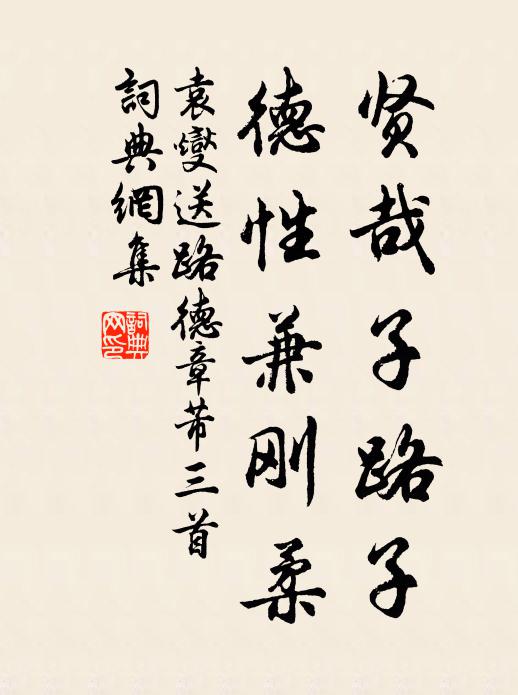 贤哉子路子
德性兼刚柔
袁燮送路德章芾三首
词典網集
詞典網印